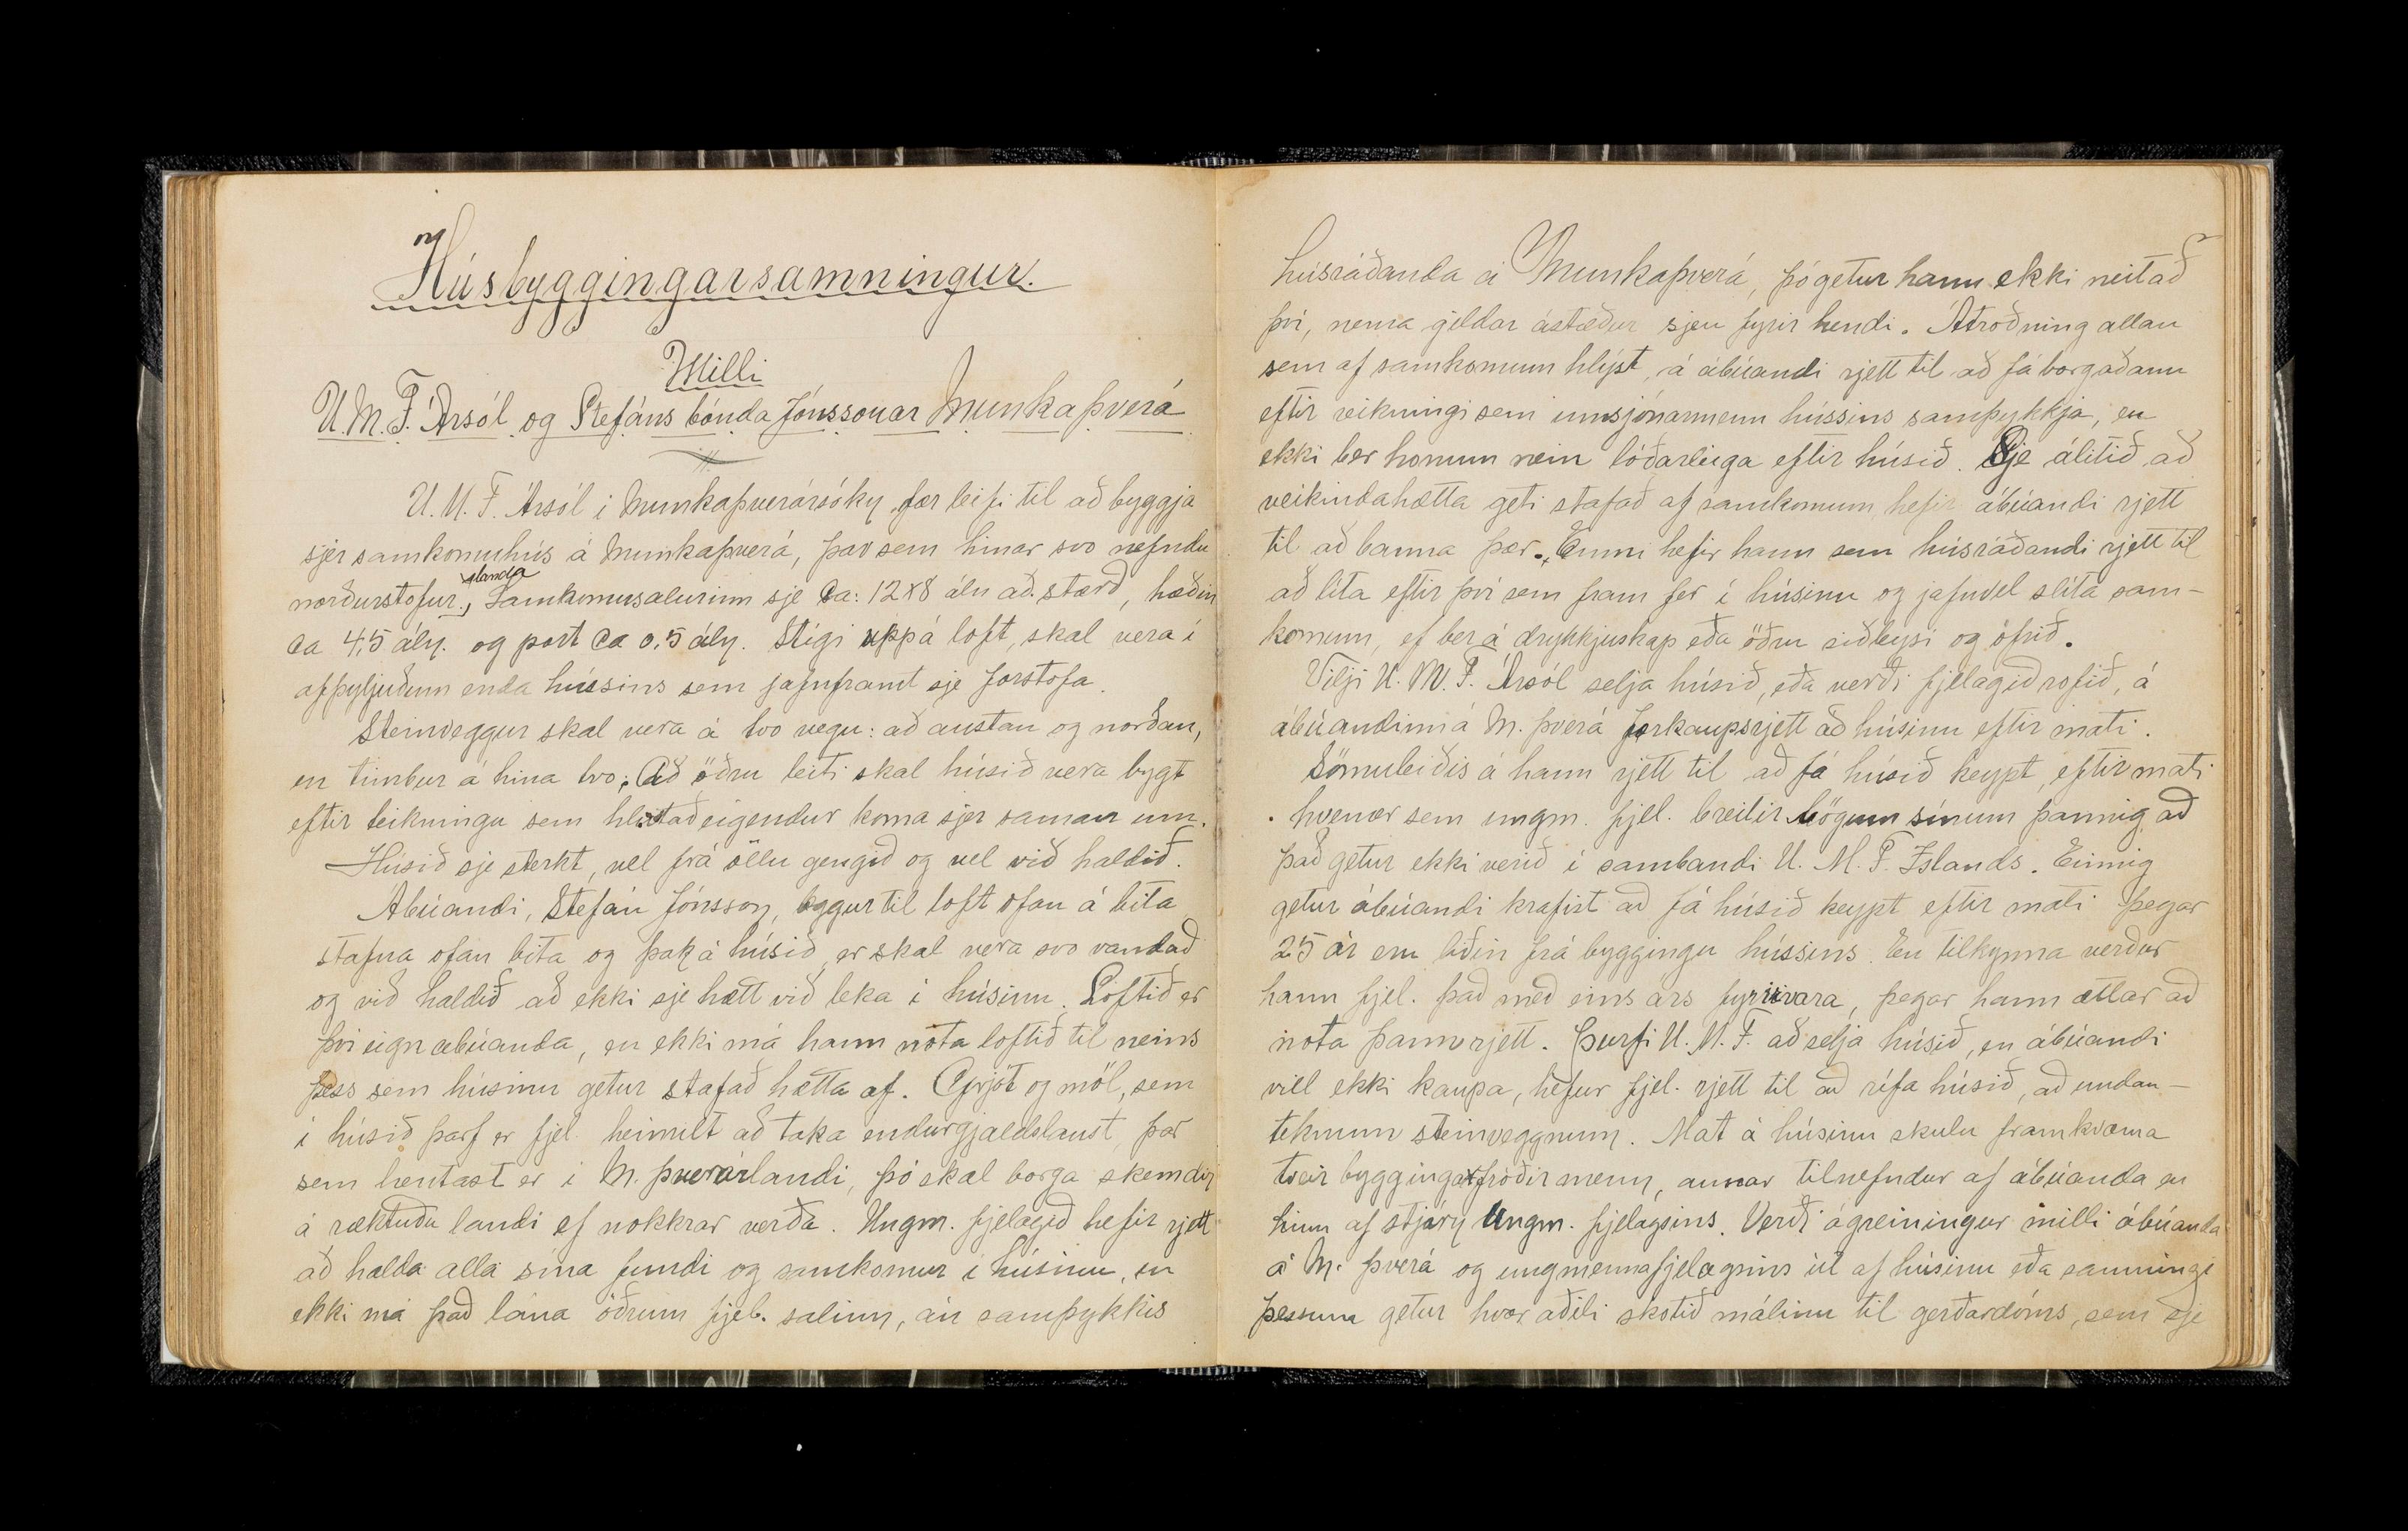 Húsbyggingarsamningur.
Milli
U.M.F. Ársól og Stefáns bónda Jónssonar Munkaþverá
U.M.F. Ársól í Munkaþverársókn fær leifi til að byggja
sjer samkomuhús á Munkaþverá, þar sem hinar svo nefndu
norðurstofur standa. Samkomusalurinn sje ca: 12x8 áln að stærð, hæðin
ca 4,5 áln. og port ca 0,5 áln. Stigi uppá loft, skal vera í
afþyljuðum enda hússins sem jafnframt sje forstofa.
Steinveggur skal vera á tvo vegu: að austan og norðan,
en timbur á hina tvo. Að öðru leiti skal húsið vera bygt
eftir teikningu sem hlutaðeigendur koma sjer saman um.
Húsið sje sterkt, vel frá öllu gengið og vel við haldið.
Ábúandi, Stefán Jónsson, leggur til loft ofan á bita
stafna ofan bita og þak á húsið, er skal vera svo vandað
og við haldið að ekki sje hætt við leka í húsinu. Loftið er
því eign ábúanda, en ekki má hann nota loftið til neins
þess sem húsinu getur stafað hætta af. Grjót og möl, sem
í húsið þarf er fjel. heimilt að taka endurgjaldslaust, þar
sem hentast er í M.þverárlandi, þó skal borga skemdir
á ræktuðu landi ef nokkrar verða. Ungm. fjelagið hefir rjett
að halda alla sína fundi og samkomur í húsinu, en
ekki má það lána öðrum fjel. salinn, án samþykkis
húsráðanda á Munkaþverá, þó getur hann ekki neitað
því, nema gildar ástæður sjeu fyrir hendi. Átroðning allan
sem af samkomum hlýst, á ábúandi rjett til að fá borgaðann
eftir reikningi sem umsjónarmenn hússins samþykkja, en
ekki ber honum nein lóðarleiga eftir húsið. Sje álitið að
veikindahætta geti stafað af samkomum hefir ábúandi rjett
til að banna þær. Einni hefir hann sem húsráðandi rjett til
að líta eftir því sem fram fer í húsinu og jafnvel slíta sam-
komum, ef ber á drykkjuskap eða öðru siðleysi og ófrið.
Vilji U.M.F. Ársól selja húsið, eða verði fjelagið rofið, á
ábúandinn á M.þverá forkaupsrjett að húsinu eftir mati.
Sömuleiðis á hann rjett til að fá húsið keypt, eftir mati
hvenær sem ungm. fjel. breitir lögum sínum þannig að
það getur ekki verið í sambandi U.M.F. Íslands. Einnig
getur ábúandi krafist að fá húsið keypt eftir mati þegar
25 ár eru liðin frá byggingu hússins. En tilkynna verður
hann fjel. það með eins árs fyrirvara, þegar hann ætlar að
nota þann rjett. Þurfi U.M.F. að selja húsið, en ábúandi
vill ekki kaupa, hefur fjel. rjett til að rífa húsið, að undan-
teknum steinveggnum. Mat á húsinu skulu framkvæma
tveir byggingafróðir menn, annar tilnefndur af ábúanda en
hinn af stjórn Ungm. fjelagsins. Verði ágreiningur milli ábúanda
á M.þverá og ungmennafjelagsins út af húsinu eða samningi
þessum getur hvor aðili skotið málinu til gerðardóms, sem sje